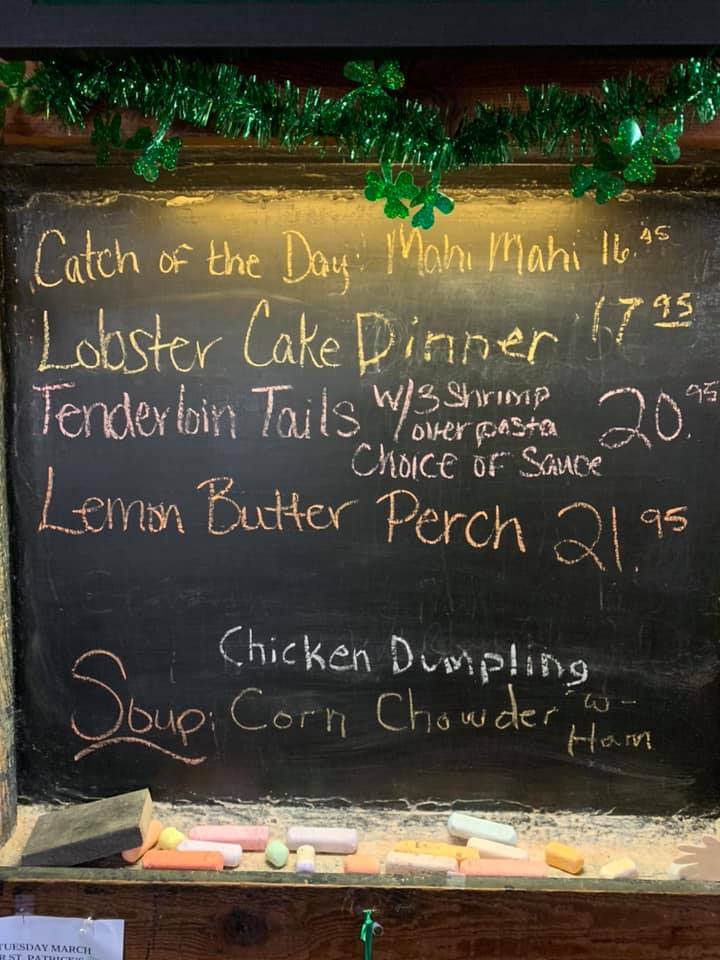 Catch of the Day: Mahi Mahi 16.95
Lobster Cake Dinner 17 95
Tenderloin Tails w/3 Shrimp over pasta 20.95
Choice of Sauce
Lemon Butter Perch 21.95
Chicken Dumpling
Soup: Corn Chowder w-
Ham
TUESDAY MARCH
R ST. PATRICK'S